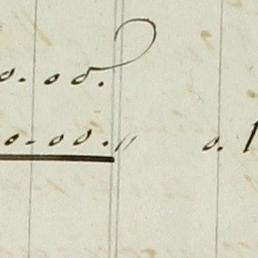 0.00.
0.00.〃 0.1